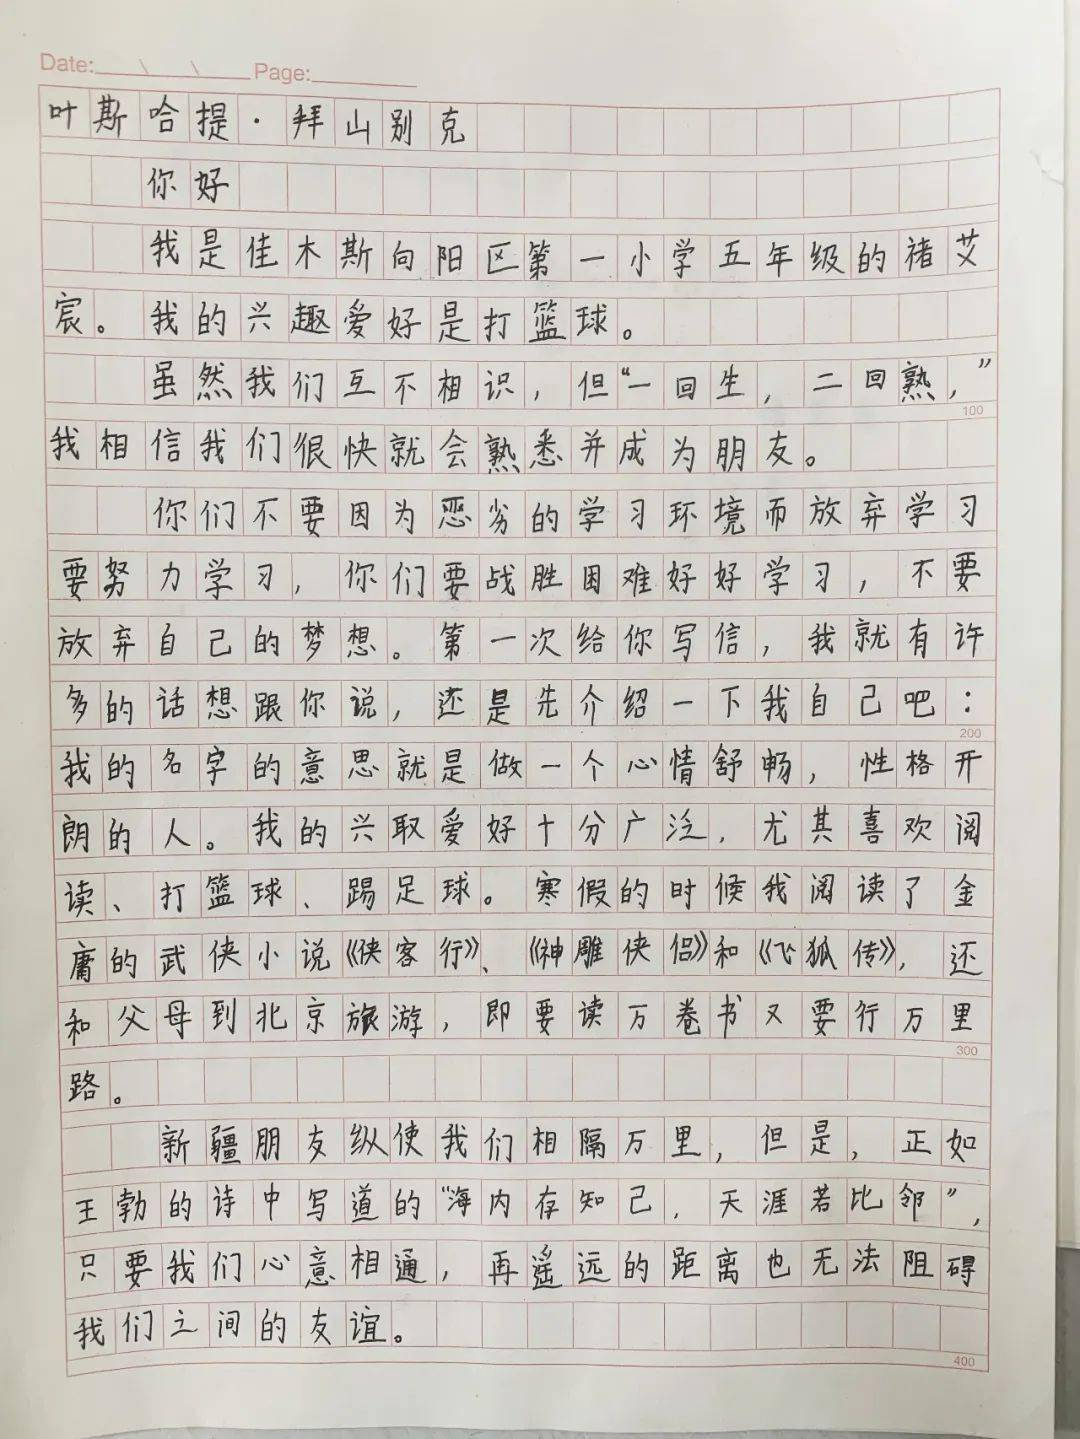 Date: \ \ Page:
叶斯哈提·拜山别克
你好
我是佳木斯向阳区第一小学五年级的褚艾
宸。我的兴趣爱好是打篮球。
虽然我们互不相识，但“一回生，二回熟，”
100
我相信我们很快就会熟悉并成为朋友。
你们不要因为恶劣的学习环境而放弃学习
要努力学习，你们要战胜困难好好学习，不要
放弃自己的梦想。第一次给你写信，我就有许
多的话想跟你说，还是先介绍一下我自己吧：
200
我的名字的意思就是做一个心情舒畅，性格开
朗的人。我的兴取爱好十分广泛，尤其喜欢阅
读、打篮球、踢足球。寒假的时候我阅读了金
庸的武侠小说《侠客行》、《神雕侠侣》和《飞狐传》，还
和父母到北京旅游，即要读万卷书又要行万里
300
路。
新疆朋友纵使我们相隔万里，但是，正如
王勃的诗中写道的“海内存知己，天涯若比邻”，
只要我们心意相通，再遥远的距离也无法阻碍
我们之间的友谊。
400